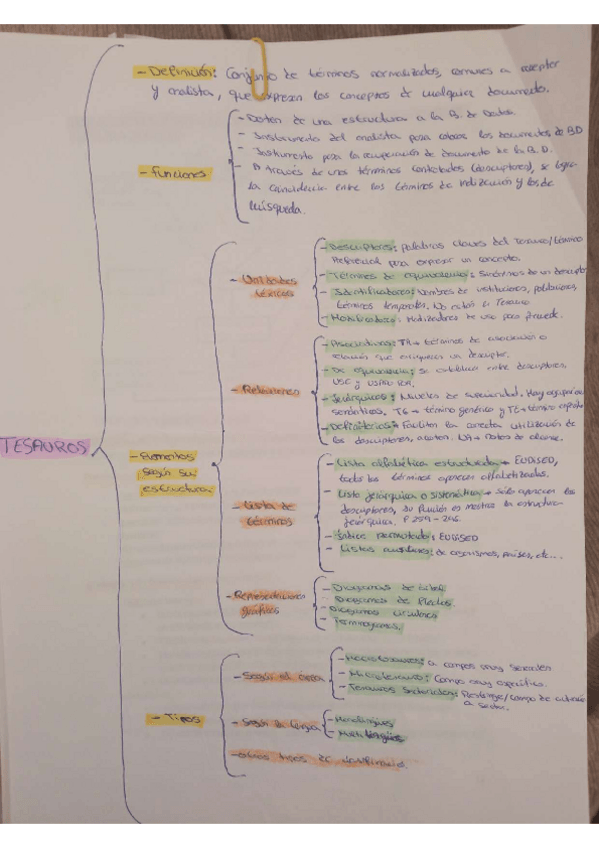 - Definición: Conjunto de términos normalizados, comunes a
y analista, que expresen los conceptos de cualquier documento.
- Funciones
- Dotan de una estructura a la B. de Datos.
- Instrumento del analista para colocar los documentos de BD
- Instrumento para la recuperación de documento de la B.D.
- A través de unos términos controlados (descriptores), se logra
la coincidencia entre los términos de indización y los de
búsqueda.
TESAUROS
- Elementos
según su
estructura
- Unidades
léxicas
- Descriptores: Palabras claves del Tesauro/término
Preferencial para expresar un concepto.
- Términos de equivalencia: Sinónimos de un descriptor
- Identificadores: Nombres de instituciones, poblaciones,
términos temporales. No están en Tesauro
- : de uso para
- Relaciones
- Asociativas: TR → términos de asociación o
relación que enriquecen un descriptor.
- De equivalencia: Se establece entre descriptores,
USE y
- Jerárquicas: Niveles de superioridad. Hay
semánticos. TG → término genérico y TE → término específico
- Definitorias: Facilitan la correcta utilización de
los descriptores, NA → Notas de alcance.
- Lista de
términos
- Lista alfabética estructurada → EUDISED,
todos los términos aparecen alfabetizados.
- Lista jerárquica o sistemática → Sólo aparecen los
descriptores, su función es mostrar la estructura
jerárquica. P 239 - 246.
- Índice permutado: EUDISED
- Listas auxiliares: de organismos, países, etc...
- Representaciones
gráficas
- Diagramas de árbol.
- Diagramas de flechas.
- Diagramas circulares
- Terminogramas.
- Tipos
- Según el área
- Macrotesauros: a campos muy generales
- Microtesauro: Campo muy específico.
- Tesauros Sectoriales: /campo de
a sector.
- Según la lengua
- Monolingües
- Multilingües
- Otros tipos de clasificación.